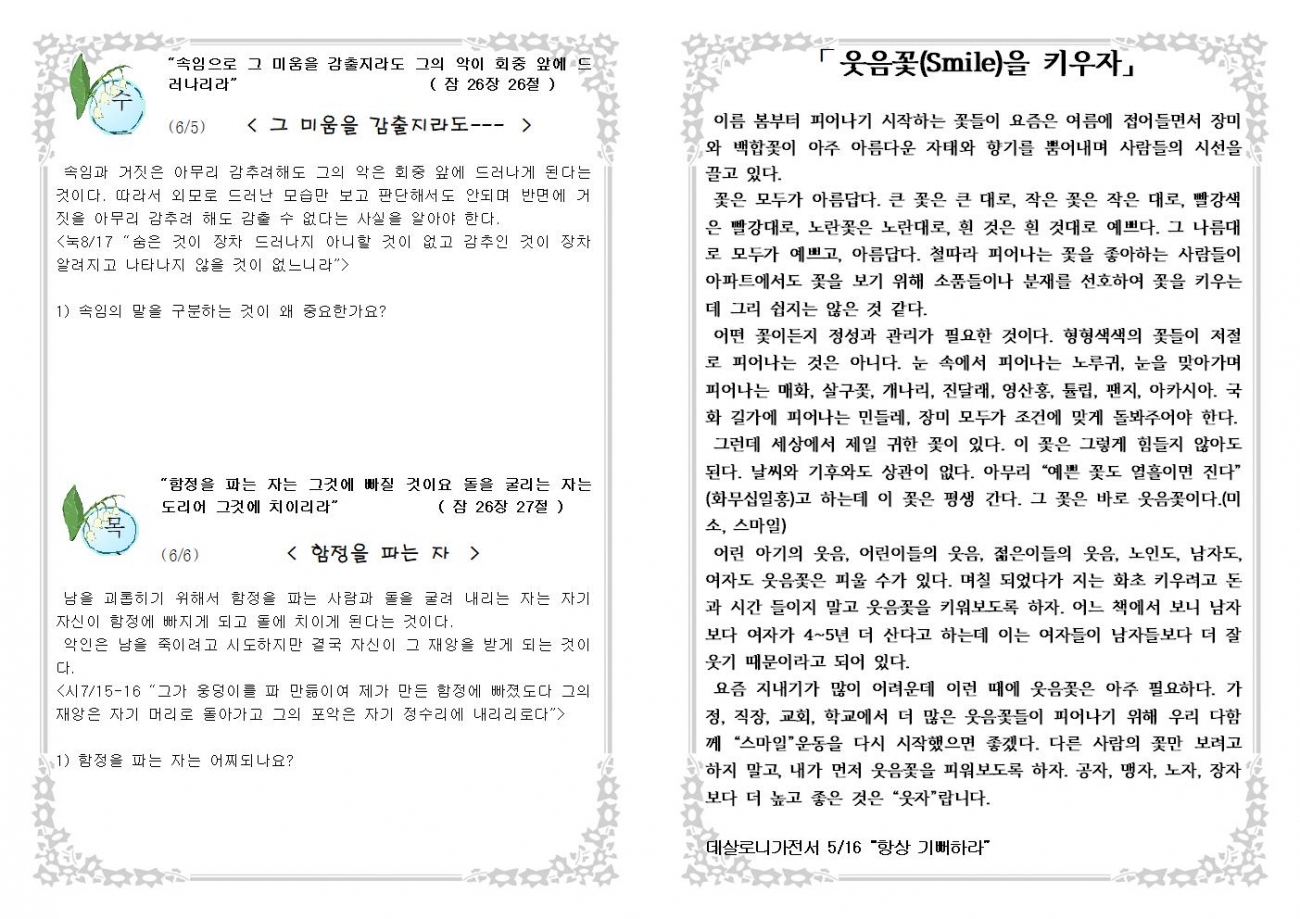 “속임으로 그 미움을 감출지라도 그의 악이 회중 앞에 드
러나리라” ( 잠 26장 26절 )
수
(6/5) < 그 미움을 감출지라도--- >
속임과 거짓은 아무리 감추려해도 그의 악은 회중 앞에 드러나게 된다는
것이다. 따라서 외모로 드러난 모습만 보고 판단해서도 안되며 반면에 거
짓을 아무리 감추려 해도 감출 수 없다는 사실을 알아야 한다.
<눅8/17 “숨은 것이 장차 드러나지 아니할 것이 없고 감추인 것이 장차
알려지고 나타나지 않을 것이 없느니라”>
1) 속임의 말을 구분하는 것이 왜 중요한가요?
“함정을 파는 자는 그것에 빠질 것이요 돌을 굴리는 자는
도리어 그것에 치이리라” ( 잠 26장 27절 )
목
(6/6) < 함정을 파는 자 >
남을 괴롭히기 위해서 함정을 파는 사람과 돌을 굴려 내리는 자는 자기
자신이 함정에 빠지게 되고 돌에 치이게 된다는 것이다.
악인은 남을 죽이려고 시도하지만 결국 자신이 그 재앙을 받게 되는 것이
다.
<시7/15-16 “그가 웅덩이를 파 만듦이여 제가 만든 함정에 빠졌도다 그의
재앙은 자기 머리로 돌아가고 그의 포악은 자기 정수리에 내리리로다”>
1) 함정을 파는 자는 어찌되나요?
「 웃음꽃(Smile)을 키우자」
이름 봄부터 피어나기 시작하는 꽃들이 요즘은 여름에 접어들면서 장미
와 백합꽃이 아주 아름다운 자태와 향기를 뿜어내며 사람들의 시선을
끌고 있다.
꽃은 모두가 아름답다. 큰 꽃은 큰 대로, 작은 꽃은 작은 대로, 빨강색
은 빨강대로, 노란꽃은 노란대로, 흰 것은 흰 것대로 예쁘다. 그 나름대
로 모두가 예쁘고, 아름답다. 철따라 피어나는 꽃을 좋아하는 사람들이
아파트에서도 꽃을 보기 위해 소품들이나 분재를 선호하여 꽃을 키우는
데 그리 쉽지는 않은 것 같다.
어떤 꽃이든지 정성과 관리가 필요한 것이다. 형형색색의 꽃들이 저절
로 피어나는 것은 아니다. 눈 속에서 피어나는 노루귀, 눈을 맞아가며
피어나는 매화, 살구꽃, 개나리, 진달래, 영산홍, 튤립, 팬지, 아카시아. 국
화 길가에 피어나는 민들레, 장미 모두가 조건에 맞게 돌봐주어야 한다.
그런데 세상에서 제일 귀한 꽃이 있다. 이 꽃은 그렇게 힘들지 않아도
된다. 날씨와 기후와도 상관이 없다. 아무리 “예쁜 꽃도 열흘이면 진다”
(화무십일홍)고 하는데 이 꽃은 평생 간다. 그 꽃은 바로 웃음꽃이다.(미
소, 스마일)
어린 아기의 웃음, 어린이들의 웃음, 젊은이들의 웃음, 노인도, 남자도,
여자도 웃음꽃은 피울 수가 있다. 며칠 되었다가 지는 화초 키우려고 돈
과 시간 들이지 말고 웃음꽃을 키워보도록 하자. 어느 책에서 보니 남자
보다 여자가 4~5년 더 산다고 하는데 이는 여자들이 남자들보다 더 잘
웃기 때문이라고 되어 있다.
요즘 지내기가 많이 어려운데 이런 때에 웃음꽃은 아주 필요하다. 가
정, 직장, 교회, 학교에서 더 많은 웃음꽃들이 피어나기 위해 우리 다함
께 “스마일”운동을 다시 시작했으면 좋겠다. 다른 사람의 꽃만 보려고
하지 말고, 내가 먼저 웃음꽃을 피워보도록 하자. 공자, 맹자, 노자, 장자
보다 더 높고 좋은 것은 “웃자”랍니다.
데살로니가전서 5/16 “항상 기뻐하라”